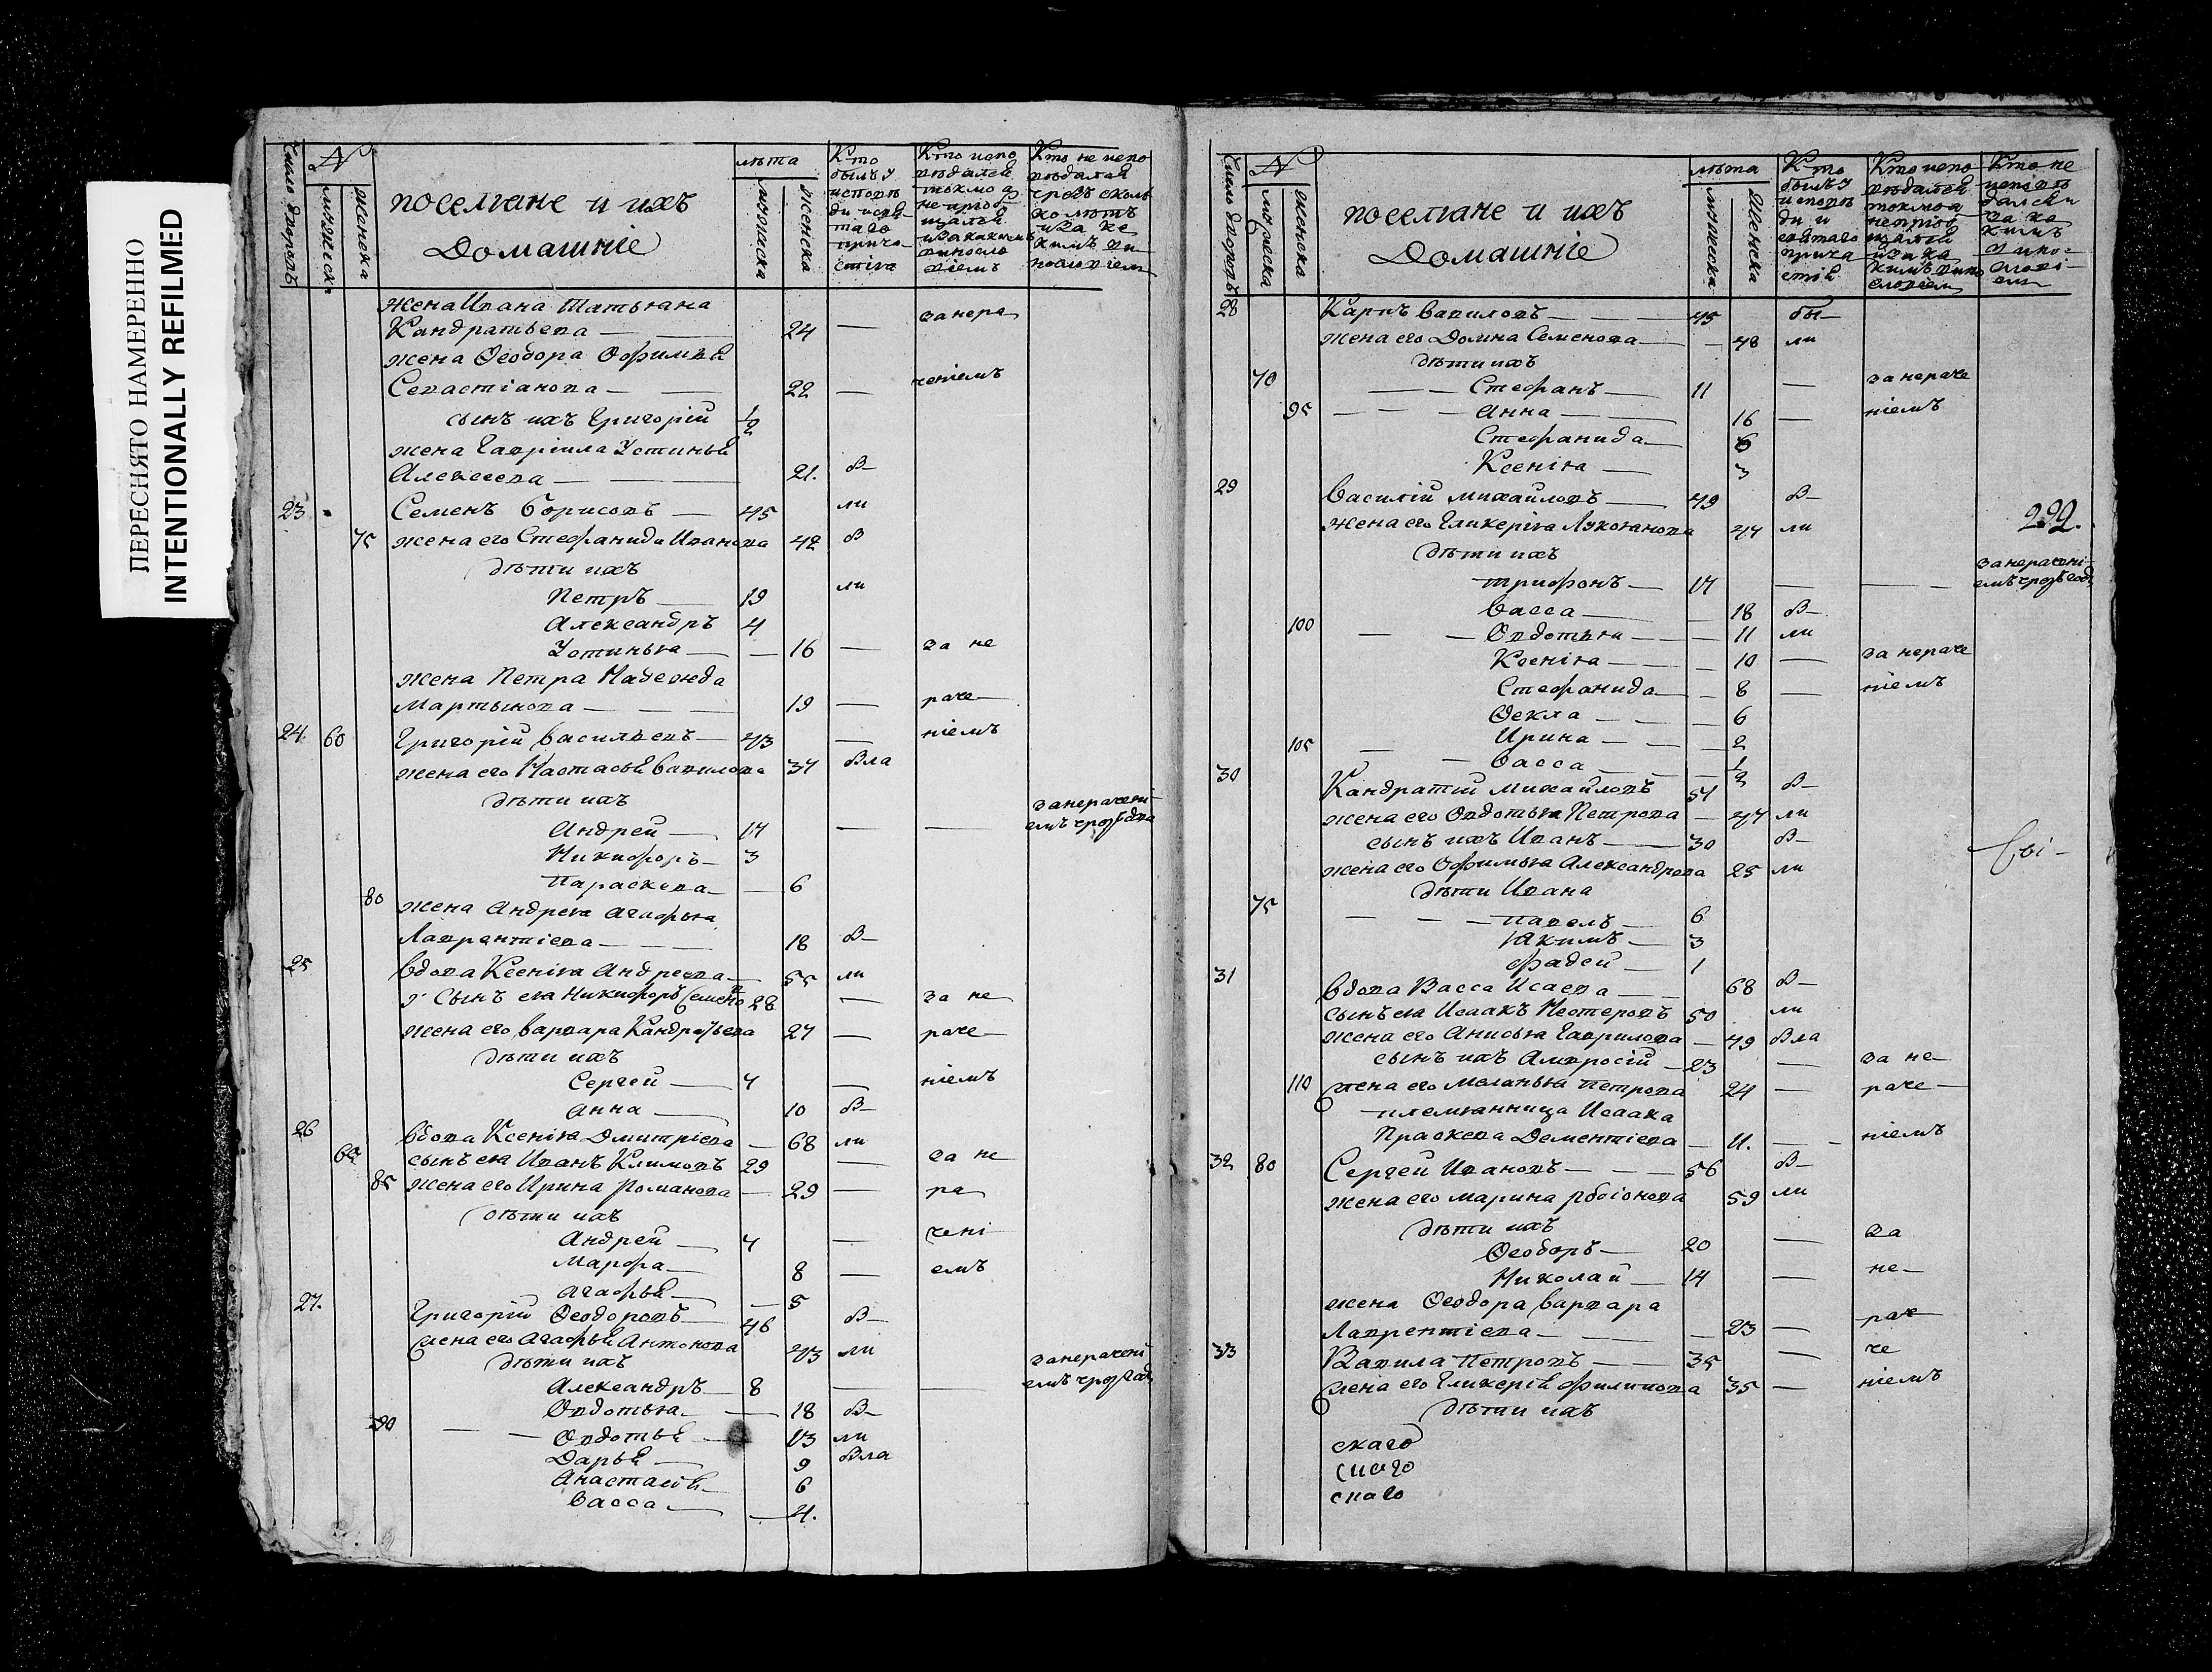 ПЕРЕСНЯТО НАМЕРЕННО
INTENTIONALLY REFILMED
Число дворовъ
№
мужеска
женска
поселяне и ихъ
Домашніе
лѣта
мужеска
женска
Кто
былъ у
исповѣ
ди и свя
таго
прича-
стія
Кто испо
вѣдался
токмо а
не прiоб
щался
и за какимъ
виносло
віемъ
Кто не испо
вѣдался
чрезъ сколь
ко лѣтъ
и за ка
кимъ ви
нословіем
жена Ивана Татьяна
Кандратьева — 24 — за нера
жена Ѳеодора Офимья
Севастіанова — 22 — ченіемъ
сынъ ихъ Григорій 1/2
жена Гавріила Устинья
Алексеева — 21. в-
23 Семенъ Борисовъ — 45 ли
75 жена его Стефанида Иванова 42 в
дѣти ихъ
Петръ — 19 ли
Александръ 4
Устинья — 16 — за не
жена Петра Надежда
Мартынова — 19 — раче-
24. 60 Григорій Васильевъ — 43 — ніемъ
жена его Настасья Вавилова 37 вла
дѣти ихъ
Андрей — 17 — — за нерачені-
емъ чрез два
Никифоръ — 3
Параскева — 6
80 жена Андрея Агафья
Лаврентіева — 18 в-
25 вдова Ксенія Андреева — 55 ли
сынъ ея Никифоръ Семено 28 — за не
жена его Варвара Кандратьева 27 — раче-
дѣти ихъ
Сергей — 4 — ніемъ
Анна — 10 в-
26 вдова Ксенія Дмитріева — 68 ли
65 сынъ ея Иванъ Климовъ 29 — за не
85 жена его Ирина Романова — 29 — ра
дѣти ихъ
Андрей — 4 — чені-
Марфа — 8 — емъ
Агафья — 5
27. Григорій Ѳеодоровъ — 46 в-
жена его Агафья Антонова 43 ли
дѣти ихъ
Александръ — 8 — — за нерачені
емъ чрез год
Овдотья — 18 в-
90 — — Овдотья — 13 ли
Дарья — 9 вла
Анастасія — 6
Васса — 4.
Число дворовъ
№
мужеска
женска
поселяне и ихъ
Домашніе
лѣта
мужеска
женска
Кто
былъ у
исповѣ
ди и
святаго
прича
стія
Кто испо
вѣдался
токмо а
непріоб
щался
и за ка
кимъ вино
словіем
Кто не
исповѣ
дался и
за ка
кимъ
вино-
слові-
ем
28 Карпъ Вавиловъ — 45 бы-
жена его Домна Семенова — 48 ли
дѣти ихъ
70 — — Стефанъ — 11 — за нераче
95 — — — Анна — 16 — ніемъ
Стефанида — 6
Ксенія — 3
29 Василій Михайловъ — 49 в-
жена его Гликерія Лукоянова 47 ли
222.
дѣти ихъ
Трифонъ — 17 — — за нерачені-
емъ чрезъ год
Васса — 18 в-
100 — — Овдотья — 11 ли
Ксенія — 10 — за нераче
Стефанида — 8 — ніемъ
Ѳекла — 6
105 — Ирина — 2
— Васса — 1/2
30 Кандратій Михайловъ 54 в-
жена его Овдотья Петрова — 47 ли
сынъ ихъ Иванъ — 30 в-
жена его Офимья Александрова 25 ли
дѣти Ивана
75 — — — Павелъ — 6
Якимъ — 3
Фадей — 1
31 вдова Васса Исаева — 68 в-
сынъ ея Исаакъ Нестеровъ 50 ли
жена его Анисья Гаврилова — 49 вла
сынъ ихъ Амвросій — 23 — за не-
110 жена его Меланья Петрова 24 — раче-
племянница Исаака
Праскева Дементіева — 11. — ніемъ
32 80 Сергей Ивановъ — 56 в-
жена его Марина Родіонова 59 ли
дѣти ихъ
Ѳеодоръ — 20 — за
Николай — 14 — не-
жена Ѳеодора Варвара
Лаврентіева — 23 — рач
33 Вавила Петровъ — 35 — че
жена его Гликерія Филипова 35 — ніемъ
дѣти ихъ
скаго
снаго